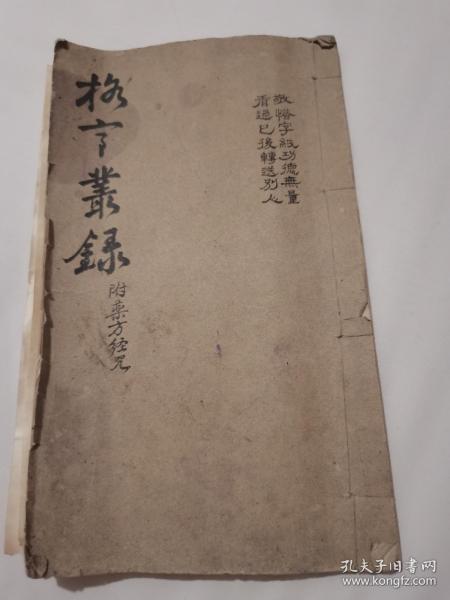 敬惜字紙功德無量
看過已後轉送別人
格言叢錄
附藥方經咒
孔夫子旧书网
www.kongfz.com